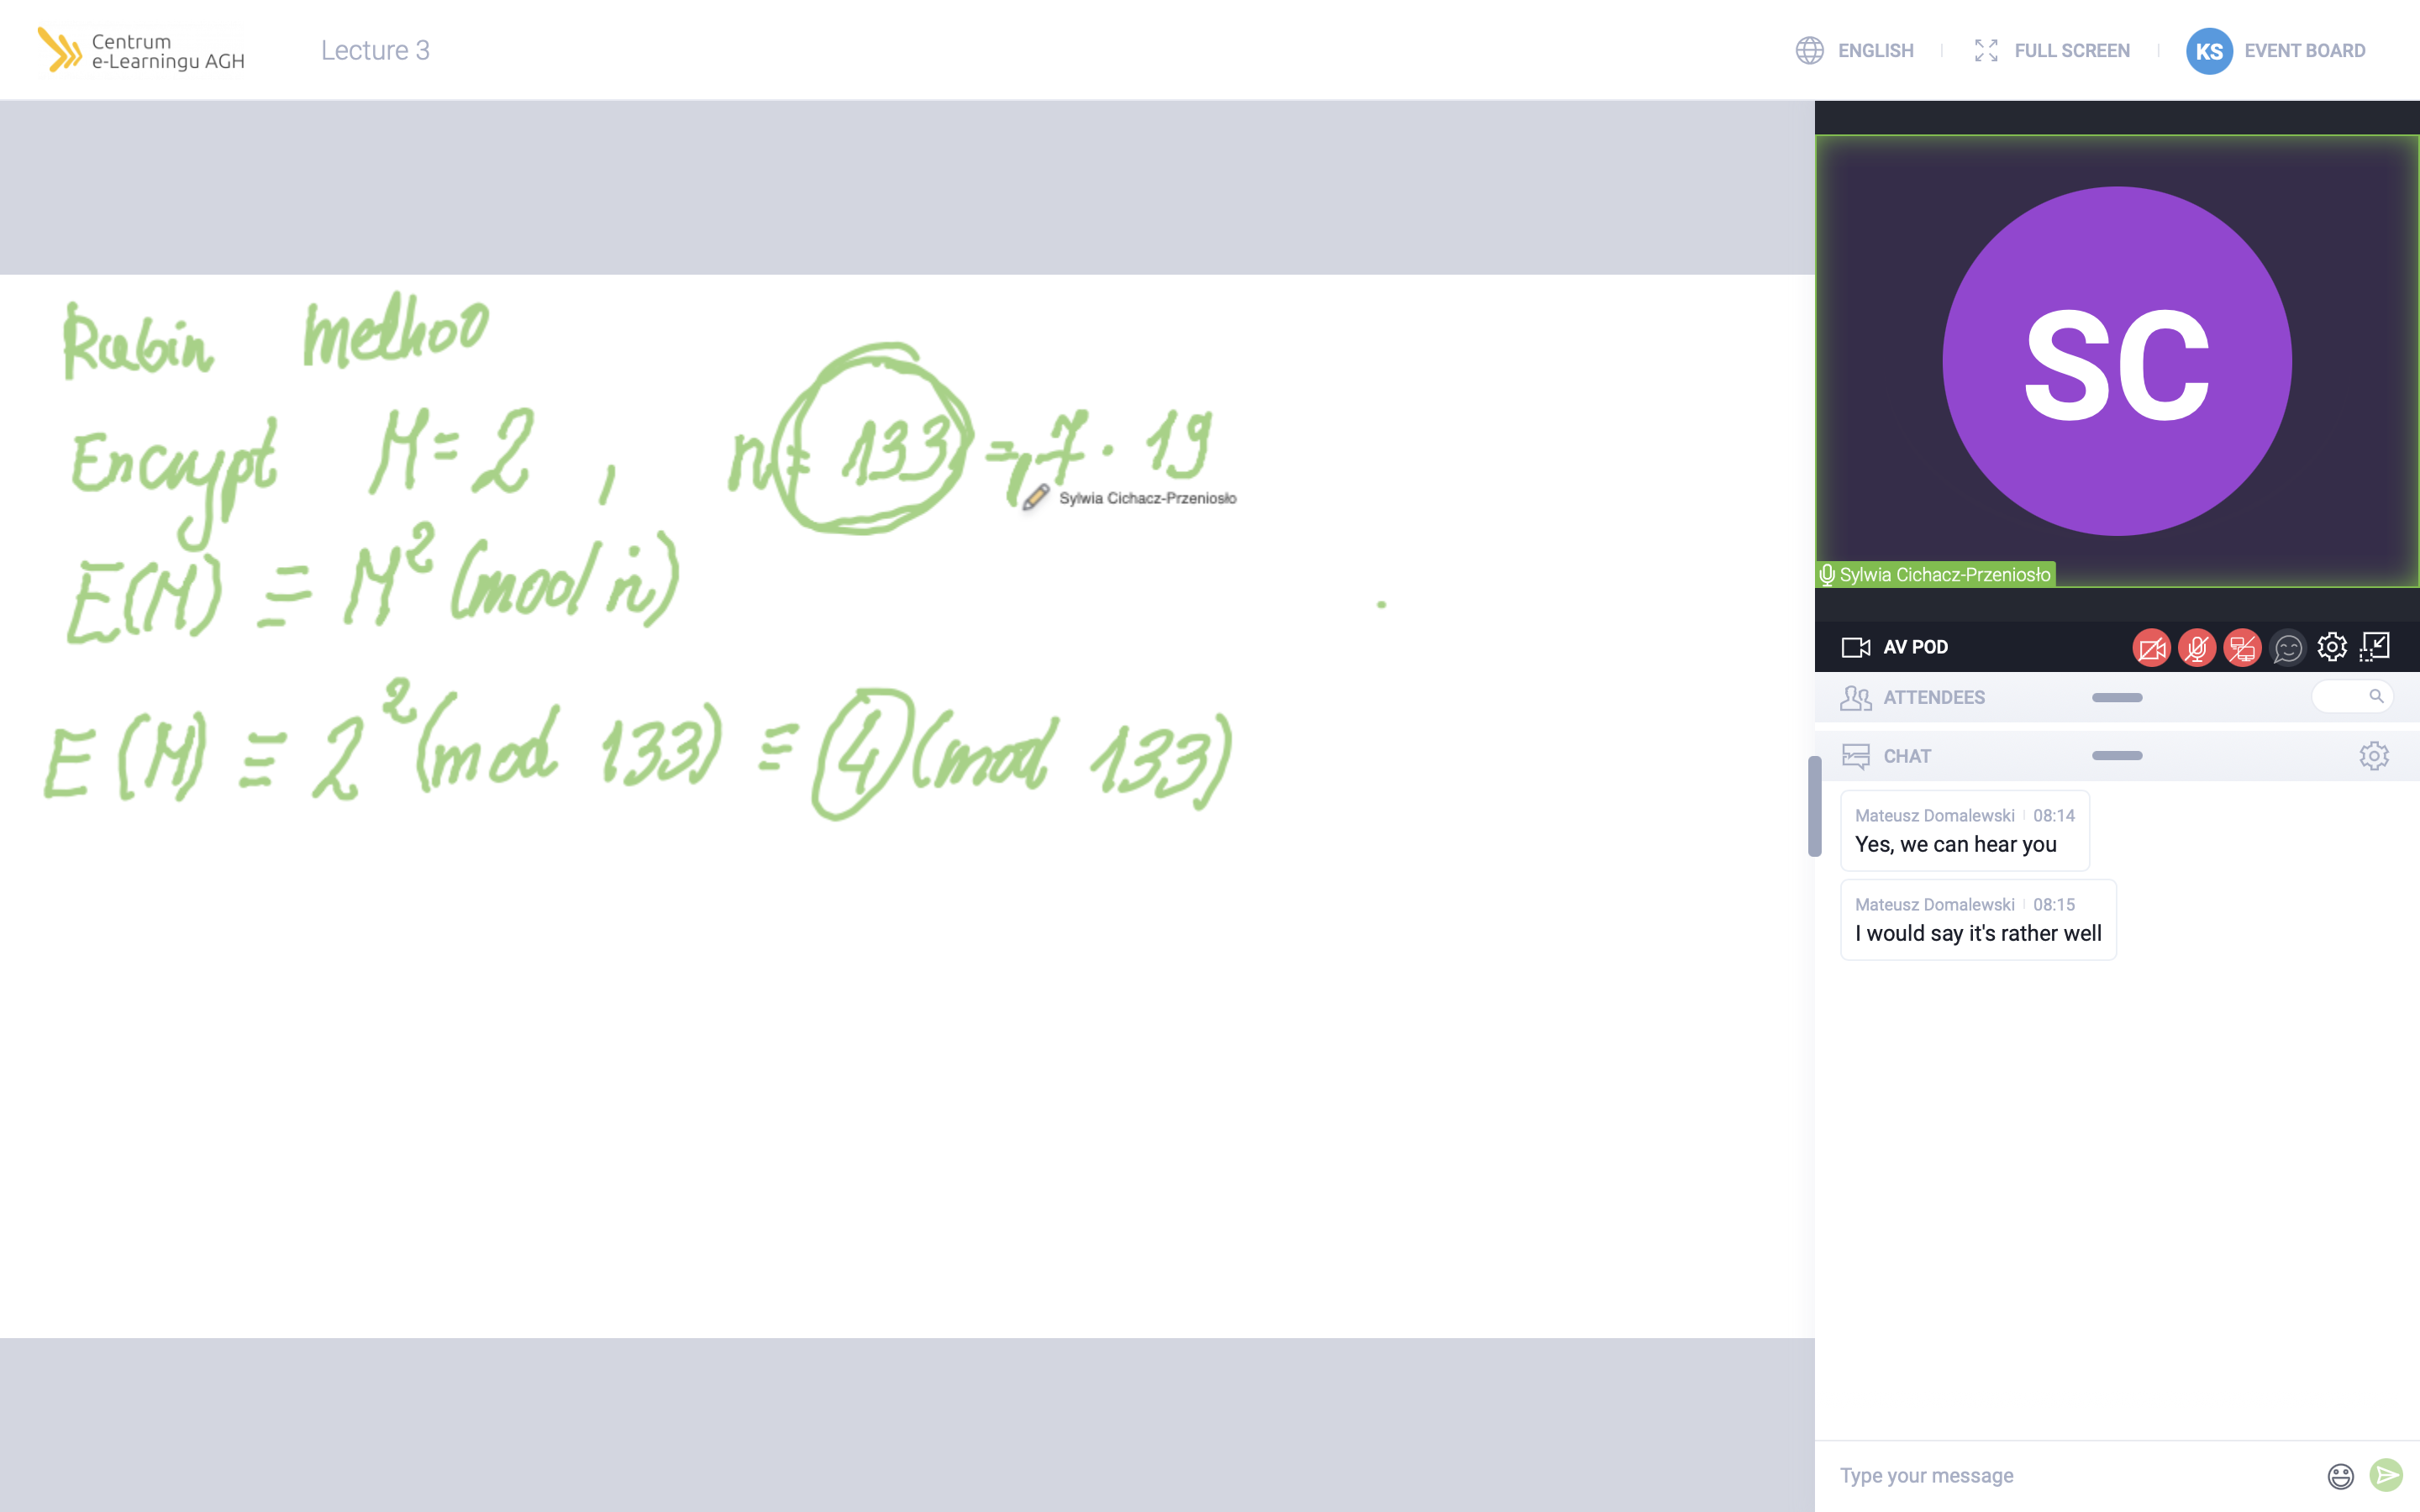 Centrum
e-Learningu AGH
Lecture 3
ENGLISH
FULL SCREEN
KS
EVENT BOARD
Rabin method
Encrypt M = 2 , n = 133 = 7 · 19
Sylwia Cichacz-Przeniosło
E(M) ≡ M² (mod n)
E(M) ≡ 2² (mod 133) ≡ 4 (mod 133)
SC
Sylwia Cichacz-Przeniosło
AV POD
ATTENDEES
CHAT
Mateusz Domalewski 08:14
Yes, we can hear you
Mateusz Domalewski 08:15
I would say it's rather well
Type your message